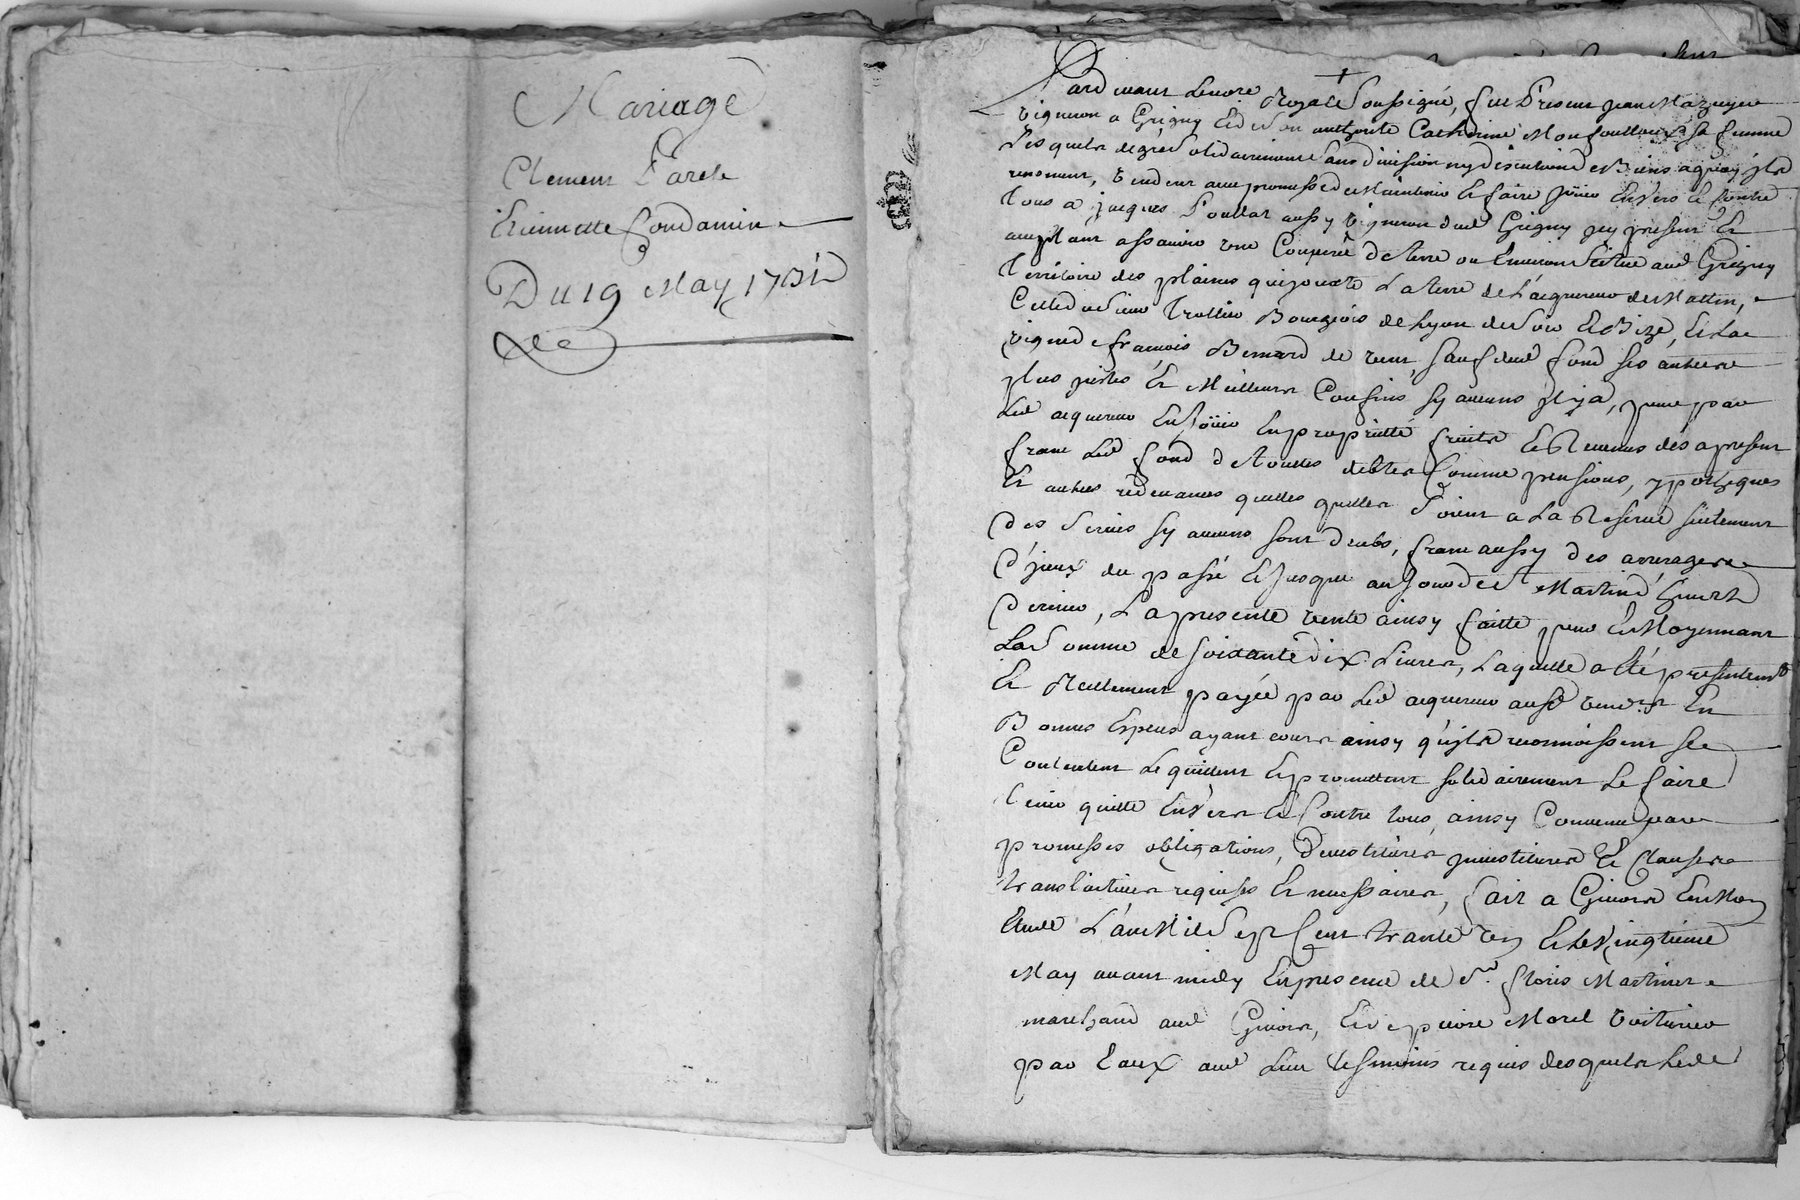 Mariage
Clement Parete
Etiennette Condamine
Du 19 May 1731
Pardevant Lenore Royale soussigné, fut Present jean Mazuyer
vigneron a Grigny Et de son authorité Catherine Monfoulloux sa femme
Lesquels de gré solidairement sans division ny discution de Biens a quoy jls
renoncent, vendent avec promesse de Maintenir Et faire joüir Envers Et Contre
tous a jacques Poullat aussy vigneron dud Grigny jcy present Et
acceptant assavoir une Couperée de terre ou Environ située aud Grigny
Territoire des plaines qui jouxte La terre de L'acquereur de Matin,
Celle du sieur Trollier Bourgeois de Lyon de soir Et Bize, Et La
vigne de françois Bernard de vent, sauf dud fond ses autres
plus justes Et Meilleurs Confins sy aucuns jl y a, pour par
Led acquereur En joüir En proprietté fruits Et Revenus dés apresent
franc Led fond de touttes debtes Comme pensions, ypotheques
Et autres redevances quelles quelles soient a La Reserve seulement
des servis sy aucuns sont deubs, franc aussy des arrerages
d'jceux du passé Et jusque au jour de St Martin d'hivert
dernier, La presente vente ainsy faitte pour Et Moyennant
La somme de soixante dix Livres, Laquelle a Eté presentemt
Et Reellement payée par Led acquereur ausd vendrs En
Bonnes Especes ayant cours ainsy qu'jls reconnoissent s'en
Contentent Le quittent Et promettent solidairement Le faire
tenir quitte Envers Et Contre tous, ainsy Convenu par
promesses obligations, devestitures jnvestitures Et Clauses
translatives requises Et necessaires, fait a Givors En Mon
Etude L'an Mil sept Cent trante un Et Le vingtieme
May avant midy En presence de Sr. floris Martinier
marchand aud Givors, Et de pierre Morel voiturier
par Eaux aud Lieu tesmoins requis desquels Led